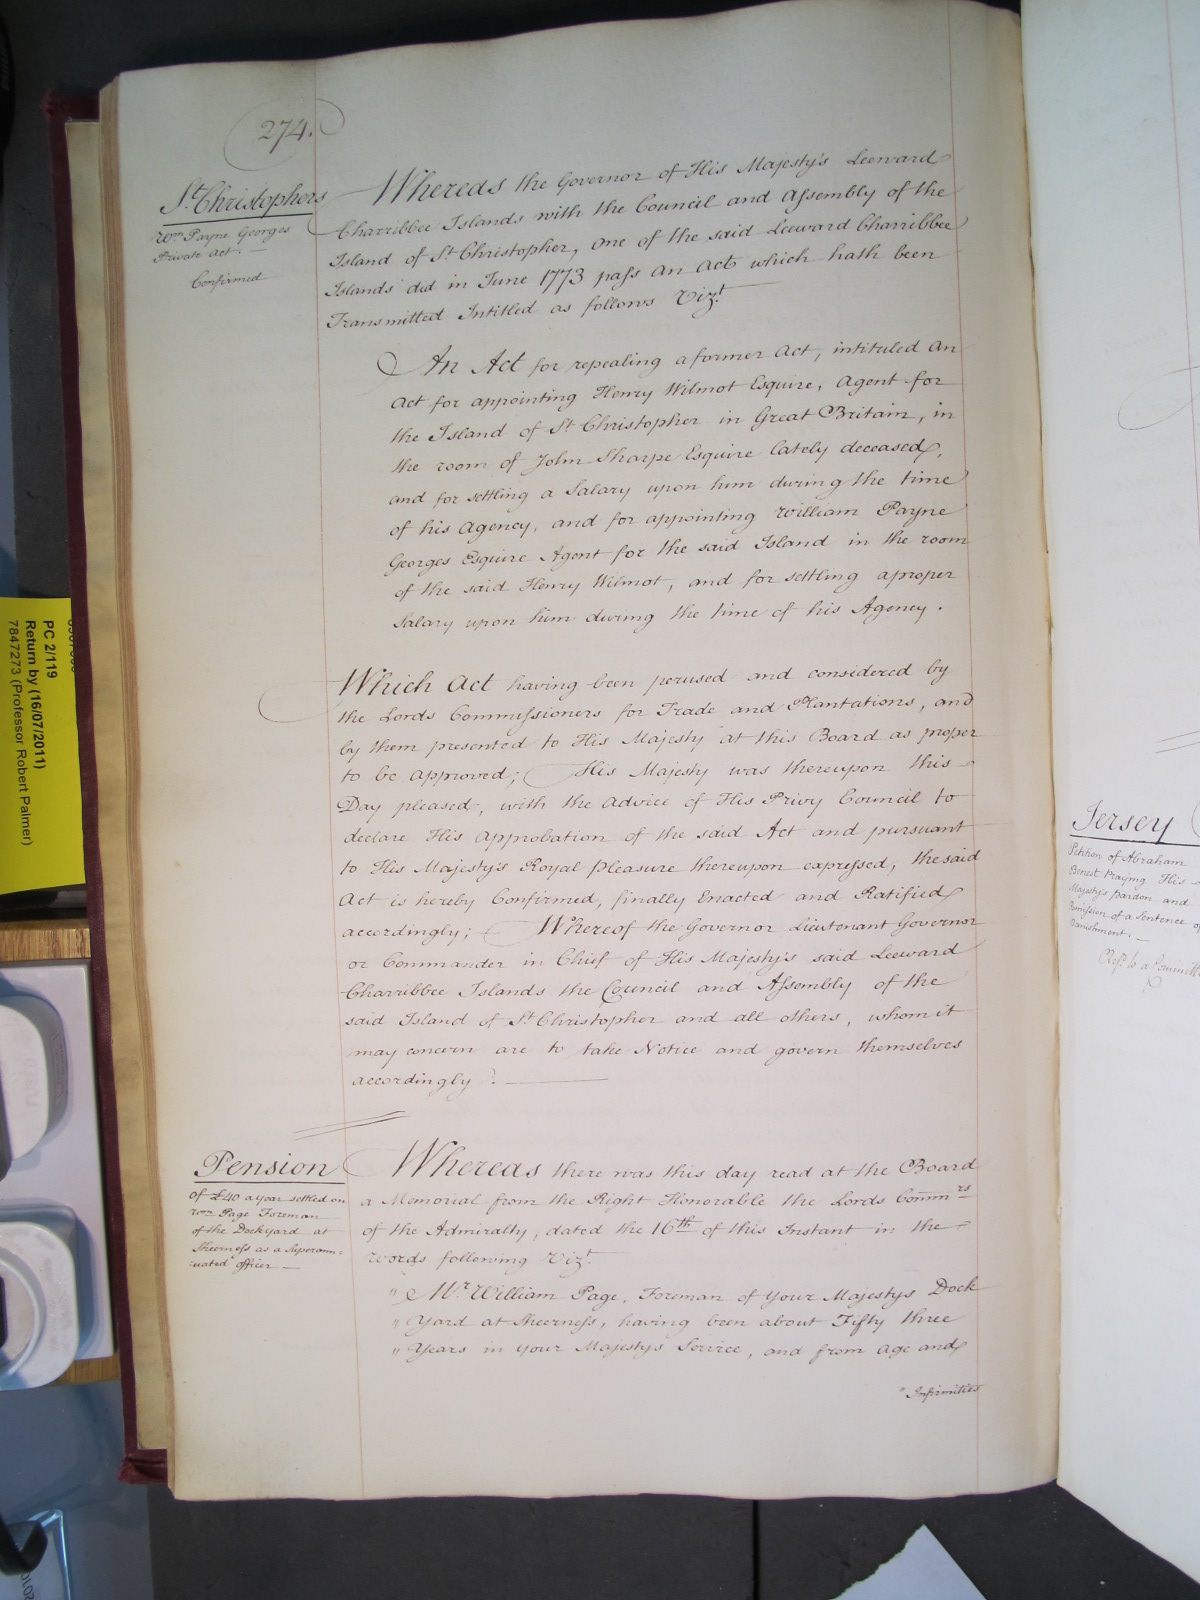 274.
St. Christophers
Wm Payne Georges
Private Act. —
Confirmed
Whereas the Governor of His Majesty's Leeward
Charribbee Islands with the Council and Assembly of the
Island of St Christopher, one of the said Leeward Charribbee
Islands did in June 1773 pass an Act which hath been
Transmitted Intitled as follows Vizt
An Act for repealing a former Act, intituled An
Act for appointing Henry Wilmot Esquire, Agent for
the Island of St Christopher in Great Britain, in
the room of John Sharpe Esquire lately deceased,
and for settling a Salary upon him during the time
of his Agency, and for appointing William Payne
Georges Esquire Agent for the said Island in the room
of the said Henry Wilmot, and for settling a proper
Salary upon him during the time of his Agency.
Which Act having been perused and considered by
the Lords Commissioners for Trade and Plantations, and
by them presented to His Majesty at this Board as proper
to be approved; His Majesty was thereupon this
Day pleased, with the Advice of His Privy Council to
declare His Approbation of the said Act and pursuant
to His Majesty's Royal Pleasure thereupon expressed, the said
Act is hereby Confirmed, finally Enacted and Ratified
accordingly; Whereof the Governor Lieutenant Governor
or Commander in Chief of His Majesty's said Leeward
Charribbee Islands the Council and Assembly of the
said Island of St Christopher and all others, whom it
may concern are to take Notice and govern themselves
accordingly. —
Pension
of £40 a year settled on
Wm Page Foreman
of the Dockyard at
Sheerness as a Superann=
uated officer —
Whereas there was this day read at the Board
a Memorial from the Right Honorable the Lords Commrs
of the Admiralty, dated the 16th of this Instant in the
words following Vizt.
" Mr. William Page, Foreman of Your Majesty's Dock
" Yard at Sheerness, having been about Fifty three
" Years in Your Majesty's Service, and from Age and
" Infirmities
Jersey
Petition of Abraham
Benest Praying His
Majesty's pardon and
Remission of a Sentence of
Banishment. —
Refd. to a Committee
PC 2/119
Return by (16/07/2011)
7847273 (Professor Robert Palmer)